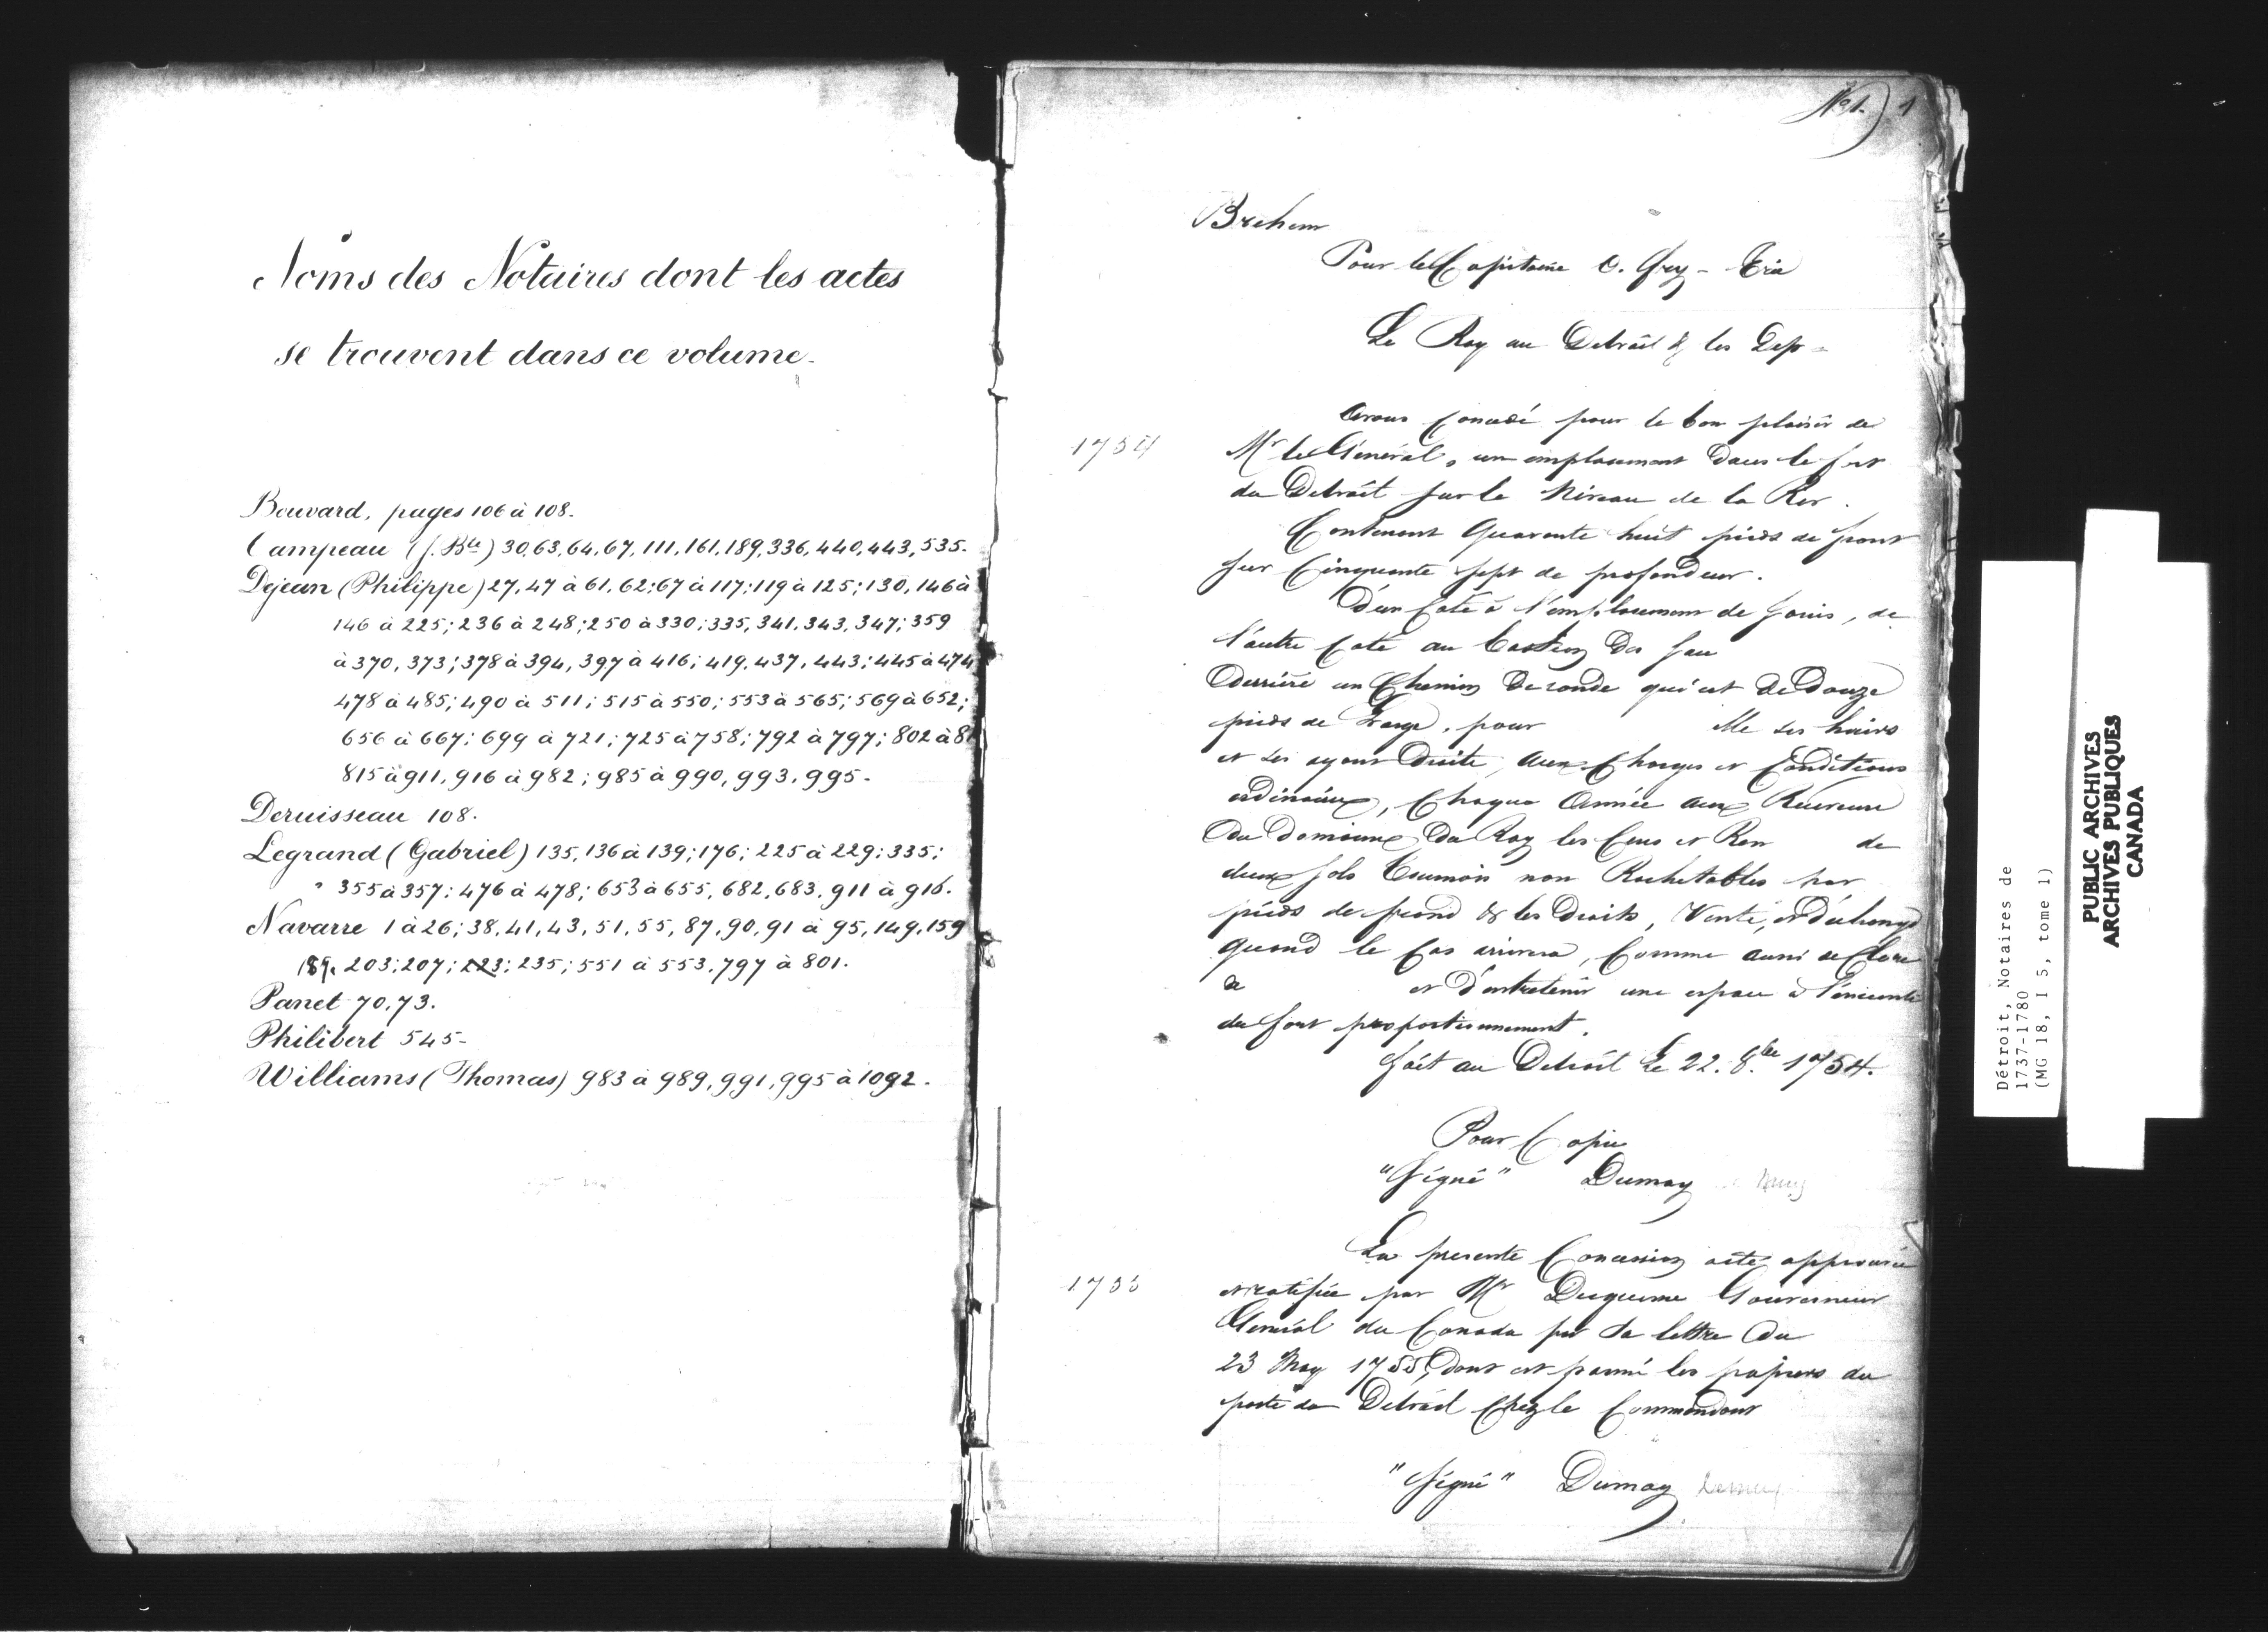 Noms des Notaires dont les actes
se trouvent dans ce volume.
Bouvard, pages 106 à 108.
Campeau (J. Bte) 30, 63, 64, 67, 111, 161, 189, 336, 440, 443, 535.
Dejean (Philippe) 27, 47 à 61, 62; 67 à 117; 119 à 125; 130, 146 à
146 à 225; 236 à 248; 250 à 330; 335, 341, 343, 347; 359
à 370, 373; 378 à 394, 397 à 416; 419, 437, 443; 445 à 474
478 à 485; 490 à 511; 515 à 550; 553 à 565; 569 à 652;
656 à 667; 699 à 721; 725 à 758; 792 à 797; 802 à
815 à 911, 916 à 982; 985 à 990, 993, 995.
Deruisseau 108.
Legrand (Gabriel) 135, 136 à 139; 176; 225 à 229; 335;
" 355 à 357; 476 à 478; 653 à 655, 682, 683, 911 à 916.
Navarre 1 à 26; 38, 41, 43, 51, 55, 87, 90, 91 à 95, 149, 159
189, 203; 207; 223; 235; 551 à 553, 797 à 801.
Panet 70, 73.
Philibert 545.
Williams (Thomas) 983 à 989, 991, 995 à 1092.
No 1. 1
Brehem
Pour le Capitaine
Le Roy au Detroit & les Dep
1754
Avons Concedé pour le bon plaisir de
Mr le Général, un emplacement dans le fort
du Detroit sur le Niveau de la Rer.
Contenant Quarante huit pieds de front
sur Cinquante sept de profondeur.
D'un Coté à l'emplacement de Gouin, de
l'autre Coté au bastion Des
Derrière un Chemin De ronde qui est De Douze
pieds de Large, pour Me ses hoirs
et ses ayant Droits, aux Charges et Conditions
ordinaires, Chaque Année aux Receveurs
Du Domaine Du Roy les Cens et Ren de
deux sols tournois non Rachetables par
pieds de front & les Droits, Vente, et d'echange
quand le Cas arrivera, Comme aussi de Clore
de et D'entretenir une espace à l'enceinte
du fort proportionnement.
fait au Detroit Le 22. 8.bre 1754.
Pour Copie
"Signé" Dumay
La presente Concession a été approuvée
1755
et ratifiée par Mr Duquesne Gouverneur
General du Canada par Sa lettre Du
23 May 1755, Dont est parmi les papiers du
poste du Detroit Chez le Commandant
"Signé" Dumay
Détroit, Notaires de
1737-1780
(MG 18, I 5, tome 1)
PUBLIC ARCHIVES
ARCHIVES PUBLIQUES
CANADA